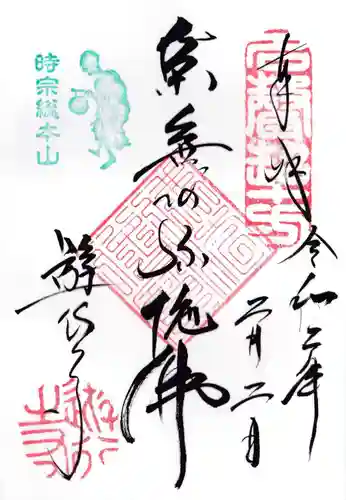 奉拝
令和二年
二月二日
南無阿弥陀佛
時宗総本山
遊行寺